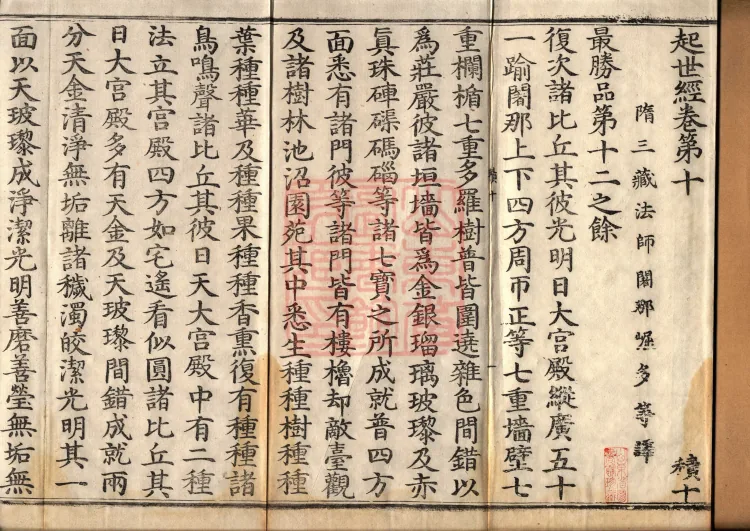 起世經卷第十
續十
隋三藏法師闍那崛多等譯
最勝品第十二之餘
復次諸比丘其彼光明日大宮殿縱廣五十
一踰闍那上下四方周帀正等七重墻壁七
重欄楯七重多羅樹普皆圍遶雜色間錯以
爲莊嚴彼諸垣墻皆爲金銀瑠璃玻瓈及赤
眞珠硨磲碼碯等諸七寶之所成就普四方
面悉有諸門彼等諸門皆有樓櫓却敵臺觀
及諸樹林池沼園苑其中悉生種種樹種種
葉種種華及種種果種種香熏復有種種諸
鳥鳴聲諸比丘其彼日天大宮殿中有二種
法立其宮殿四方如宅遙看似圓諸比丘其
日大宮殿多有天金及天玻瓈間錯成就兩
分天金清淨無垢離諸穢濁皎潔光明其一
面以天玻瓈成淨潔光明善磨善瑩無垢無